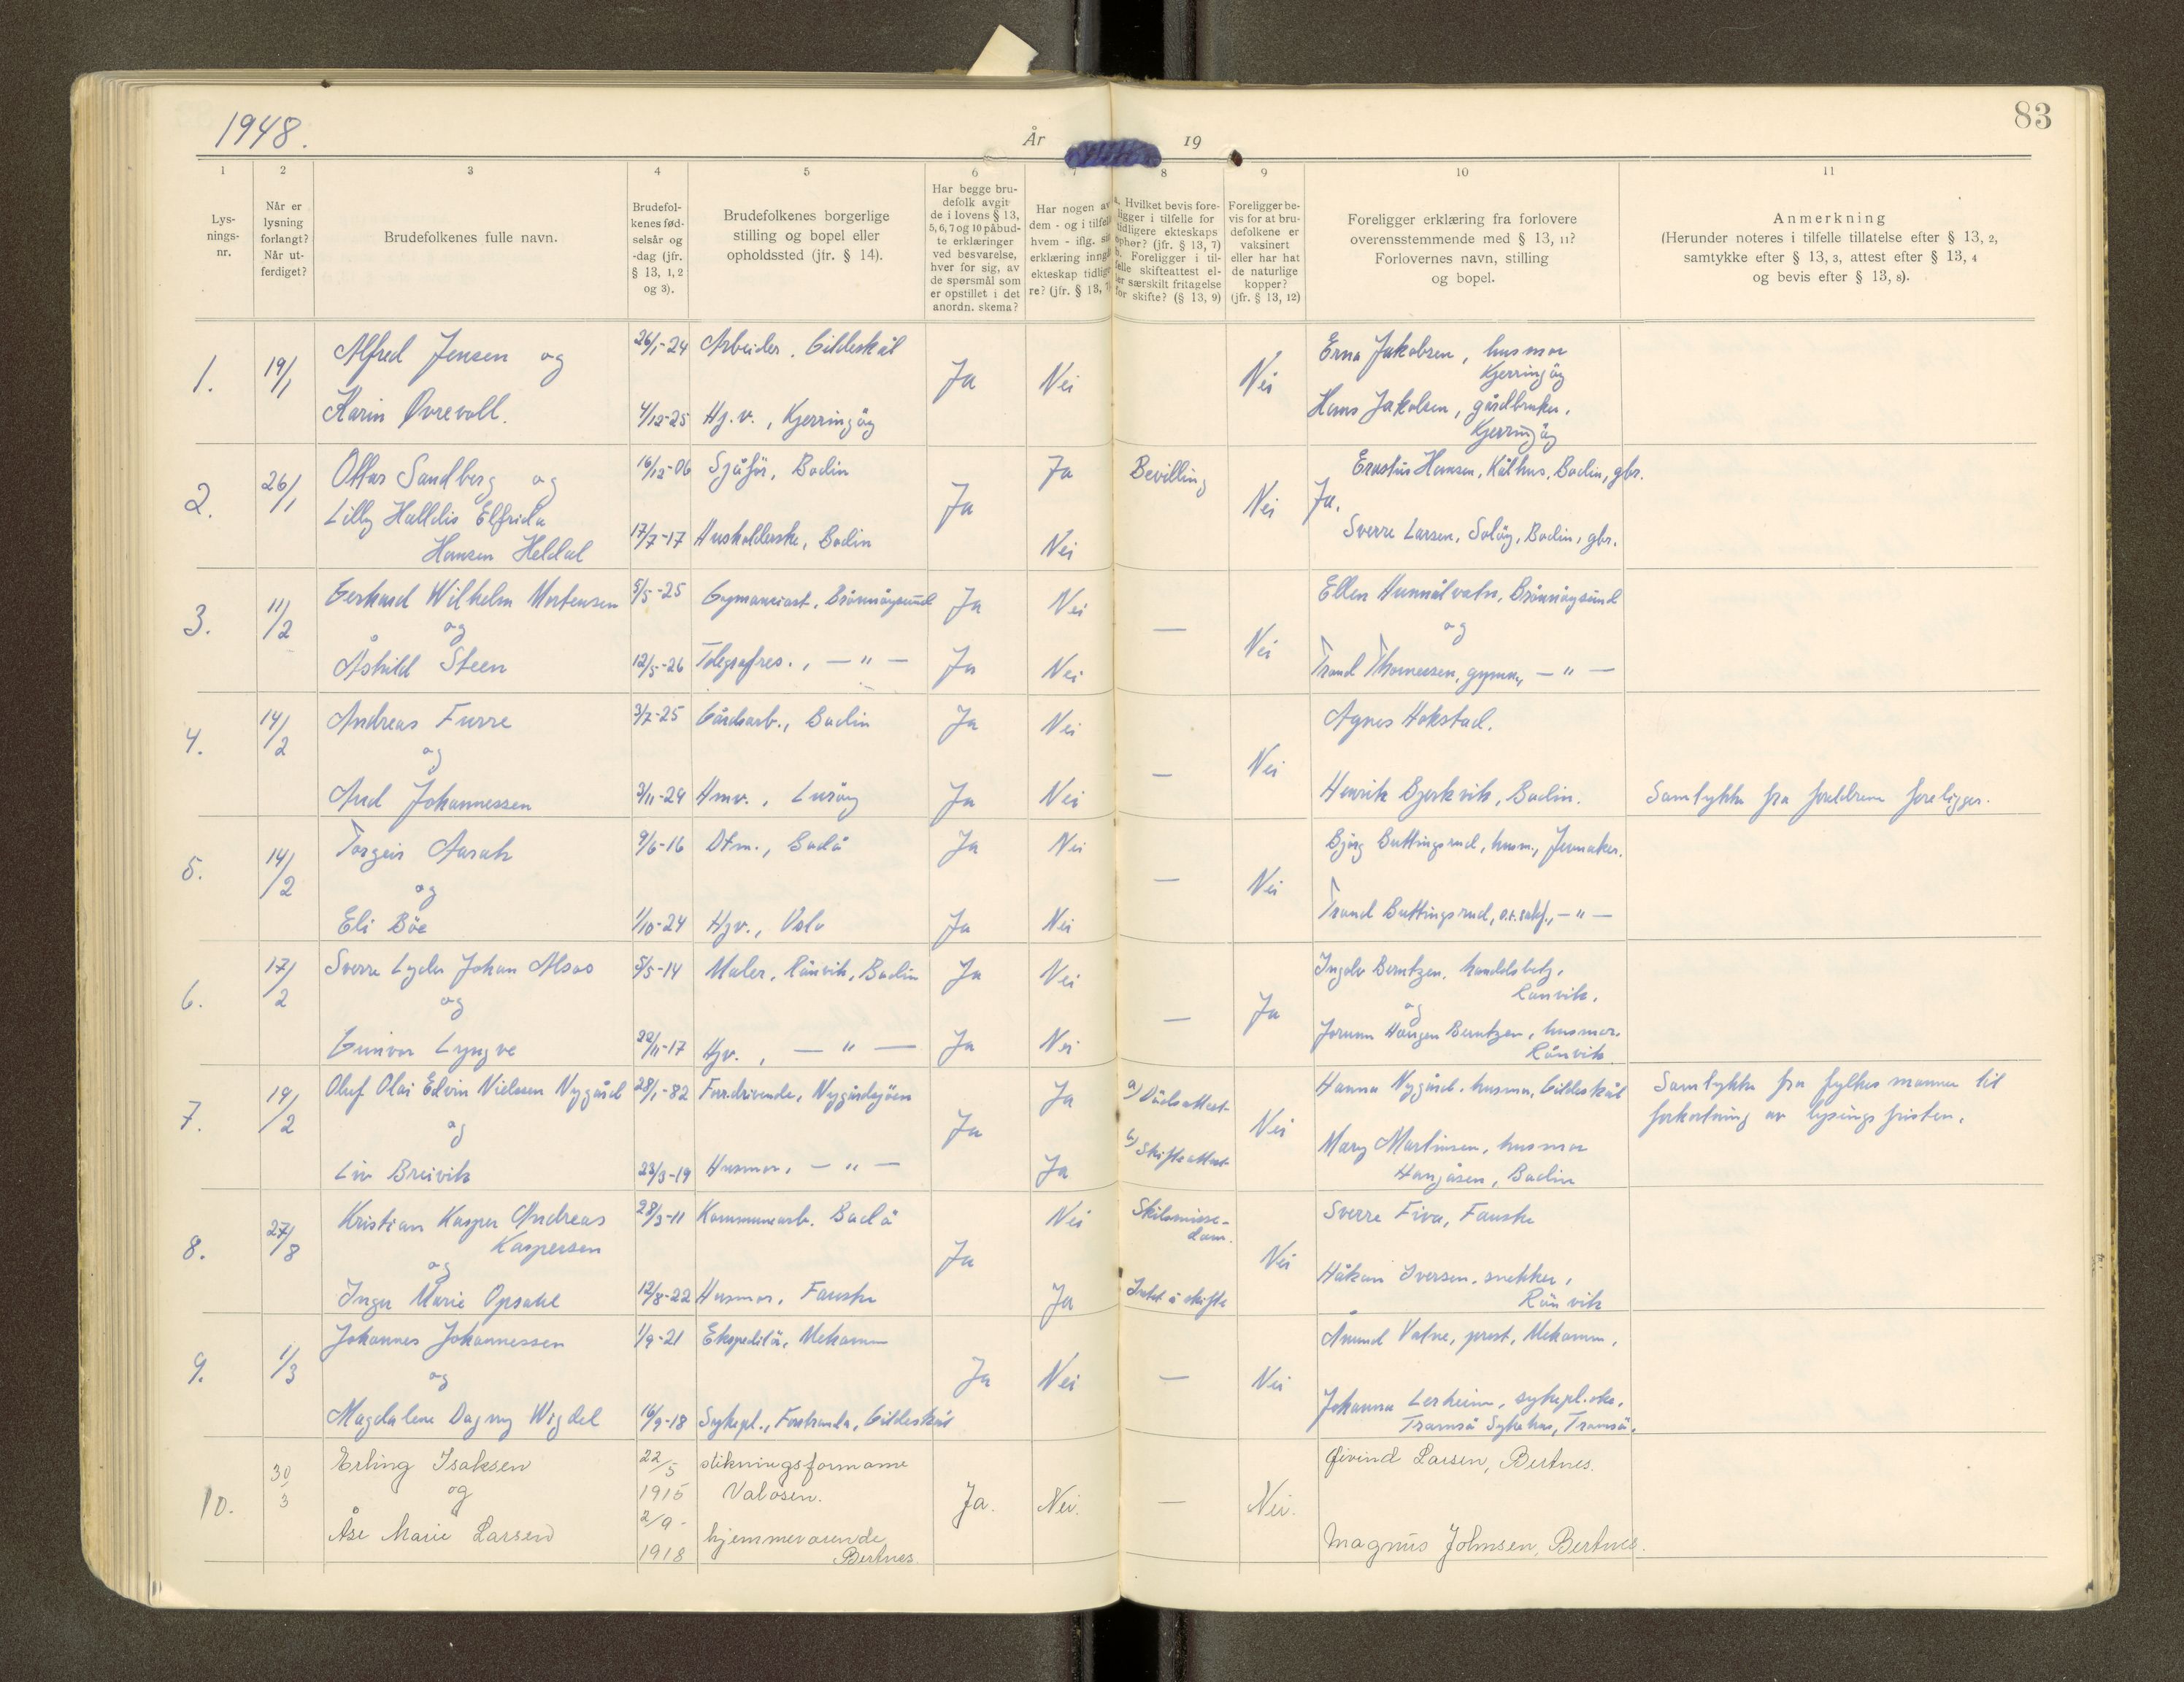 83
1948.
År
19
1 2 3 4 5 6 7 8 9 10 11
Lysnings-nr.
Når er lysning forlangt? Når utferdiget?
Brudefolkenes fulle navn.
Brudefolkenes fødselsår og -dag (jfr. § 13, 1, 2 og 3).
Brudefolkenes borgerlige stilling og bopel eller opholdssted (jfr. § 14).
Har begge brudefolk avgit de i lovens § 13, 5, 6, 7 og 10 påbudte erklæringer ved besvarelse, hver for sig, av de spørsmål som er opstillet i det anordn. skema?
Har nogen av dem - og i tilfelle hvem - iflg. erklæring inngått ekteskap tidligere? (jfr. § 13, 7)
a. Hvilket bevis foreligger i tilfelle for tidligere ekteskaps ophør? (jfr. § 13, 7) b. Foreligger i tilfelle skifteattest eller særskilt fritagelse for skifte? (§ 13, 9)
Foreligger bevis for at brudefolkene er vaksinert eller har hat de naturlige kopper? (jfr. § 13, 12)
Foreligger erklæring fra forlovere overensstemmende med § 13, 11? Forlovernes navn, stilling og bopel.
Anmerkning
(Herunder noteres i tilfelle tillatelse efter § 13, 2, samtykke efter § 13, 3, attest efter § 13, 4 og bevis efter § 13, 8).
1. 19/1 Alfred Jensen og 26/1-24 Arbeider. Gildeskål Ja Nei Nei Erna Jakobsen, husmor
Kjerringöy
Karin Øvrevoll. 4/12-25 Hj.v., Kjerringöy Hans Jakobsen, gårdbruker,
Kjerringöy
2. 26/1 Ottar Sandberg og 16/12-06 Sjåför, Bodin Ja Ja Bevilling Nei Ja. Erastus Hansen, Kålhus, Bodin, gbr.
Lilly Halldis Elfrida
Hansen Heldal 17/7-17 Husholderske, Bodin Nei Sverre Larsen, Solöy, Bodin, gbr.
3. 11/2 Gerhard Wilhelm Mortensen 5/5-25 Gymnasiast, Brönnöysund Ja Nei — Nei Ellen Hunnålvatn, Brönnöysund
og og
Åshild Steen 12/5-26 Telegrafres., — " — Ja Nei Trond Thomessen, gymn., — " —
4. 14/2 Andreas Furre 3/7-25 Gårdsarb., Bodin Ja Nei — Nei Agnes Hokstad.
og
Aud Johannessen 3/11-29 Hmv., Luröy Ja Nei Henrik Bjerkvik, Bodin. Samtykke fra foreldrene foreligger.
5. 14/2 Torgeir Aarak 9/6-16 Dtm., Bodö Ja Nei — Nei Bjørg Buttingsrud, husm., Jevnaker.
og
Eli Böe 1/10-24 Hjv., Oslo Ja Nei Trond Buttingsrud, o.r.sakf., — " —
6. 17/2 Sverre Lyder Johan Alsos 5/5-14 Maler, Rönvik, Bodin Ja Nei — Ja Ingolv Berntzen, handelsbetj.
Rönvik.
og og
Gunvor Lyngve 22/11-17 Hjv., — " — Ja Nei Jorunn Haugen Berntzen, husmor.
Rönvik
7. 19/2 Oluf Olai Edvin Nielssen Nygård 28/1-82 Forr.drivende, Nygårdsjöen Ja Ja a) Dödsattest Nei Hanna Nygård, husmor, Gildeskål Samtykke fra fylkesmannen til
og b) Skifteattest forkortning av lysingsfristen.
Liv Breivik 23/3-19 Husmor, — " — Ja Mary Martinsen, husmor
Hangåsen, Bodin
8. 27/8 Kristian Kasper Andreas 28/3-11 Kommunearb. Bodö Ja Nei Skilsmisse- Nei Sverre Fiva, Fauske
Kaspersen dom.
og
Inger Marie Opsahl 12/8-22 Husmor, Fauske Ja Intet å skifte Håkon Iversen, snekker,
Rönvik
9. 1/3 Johannes Johannessen 1/9-21 Ekspeditör, Mehamn Ja Nei — Nei Ånund Vatne, prest, Mehamn.
og
Magdalene Dagny Wigdel 16/9-18 Sykepl., Forstranda, Gildeskål Johanna Lerheim, sykepl.eks.
Tromsö Sykehus, Tromsö.
10. 30/3 Erling Isaksen 22/5 1915 slikningsformann Valosen. Ja. Nei. — Nei. Øivind Larsen, Bertnes.
og
Åse Marie Larsen 2/9-1918 hjemmeværende
Bertnes. Magnus Johnsen, Bertnes.